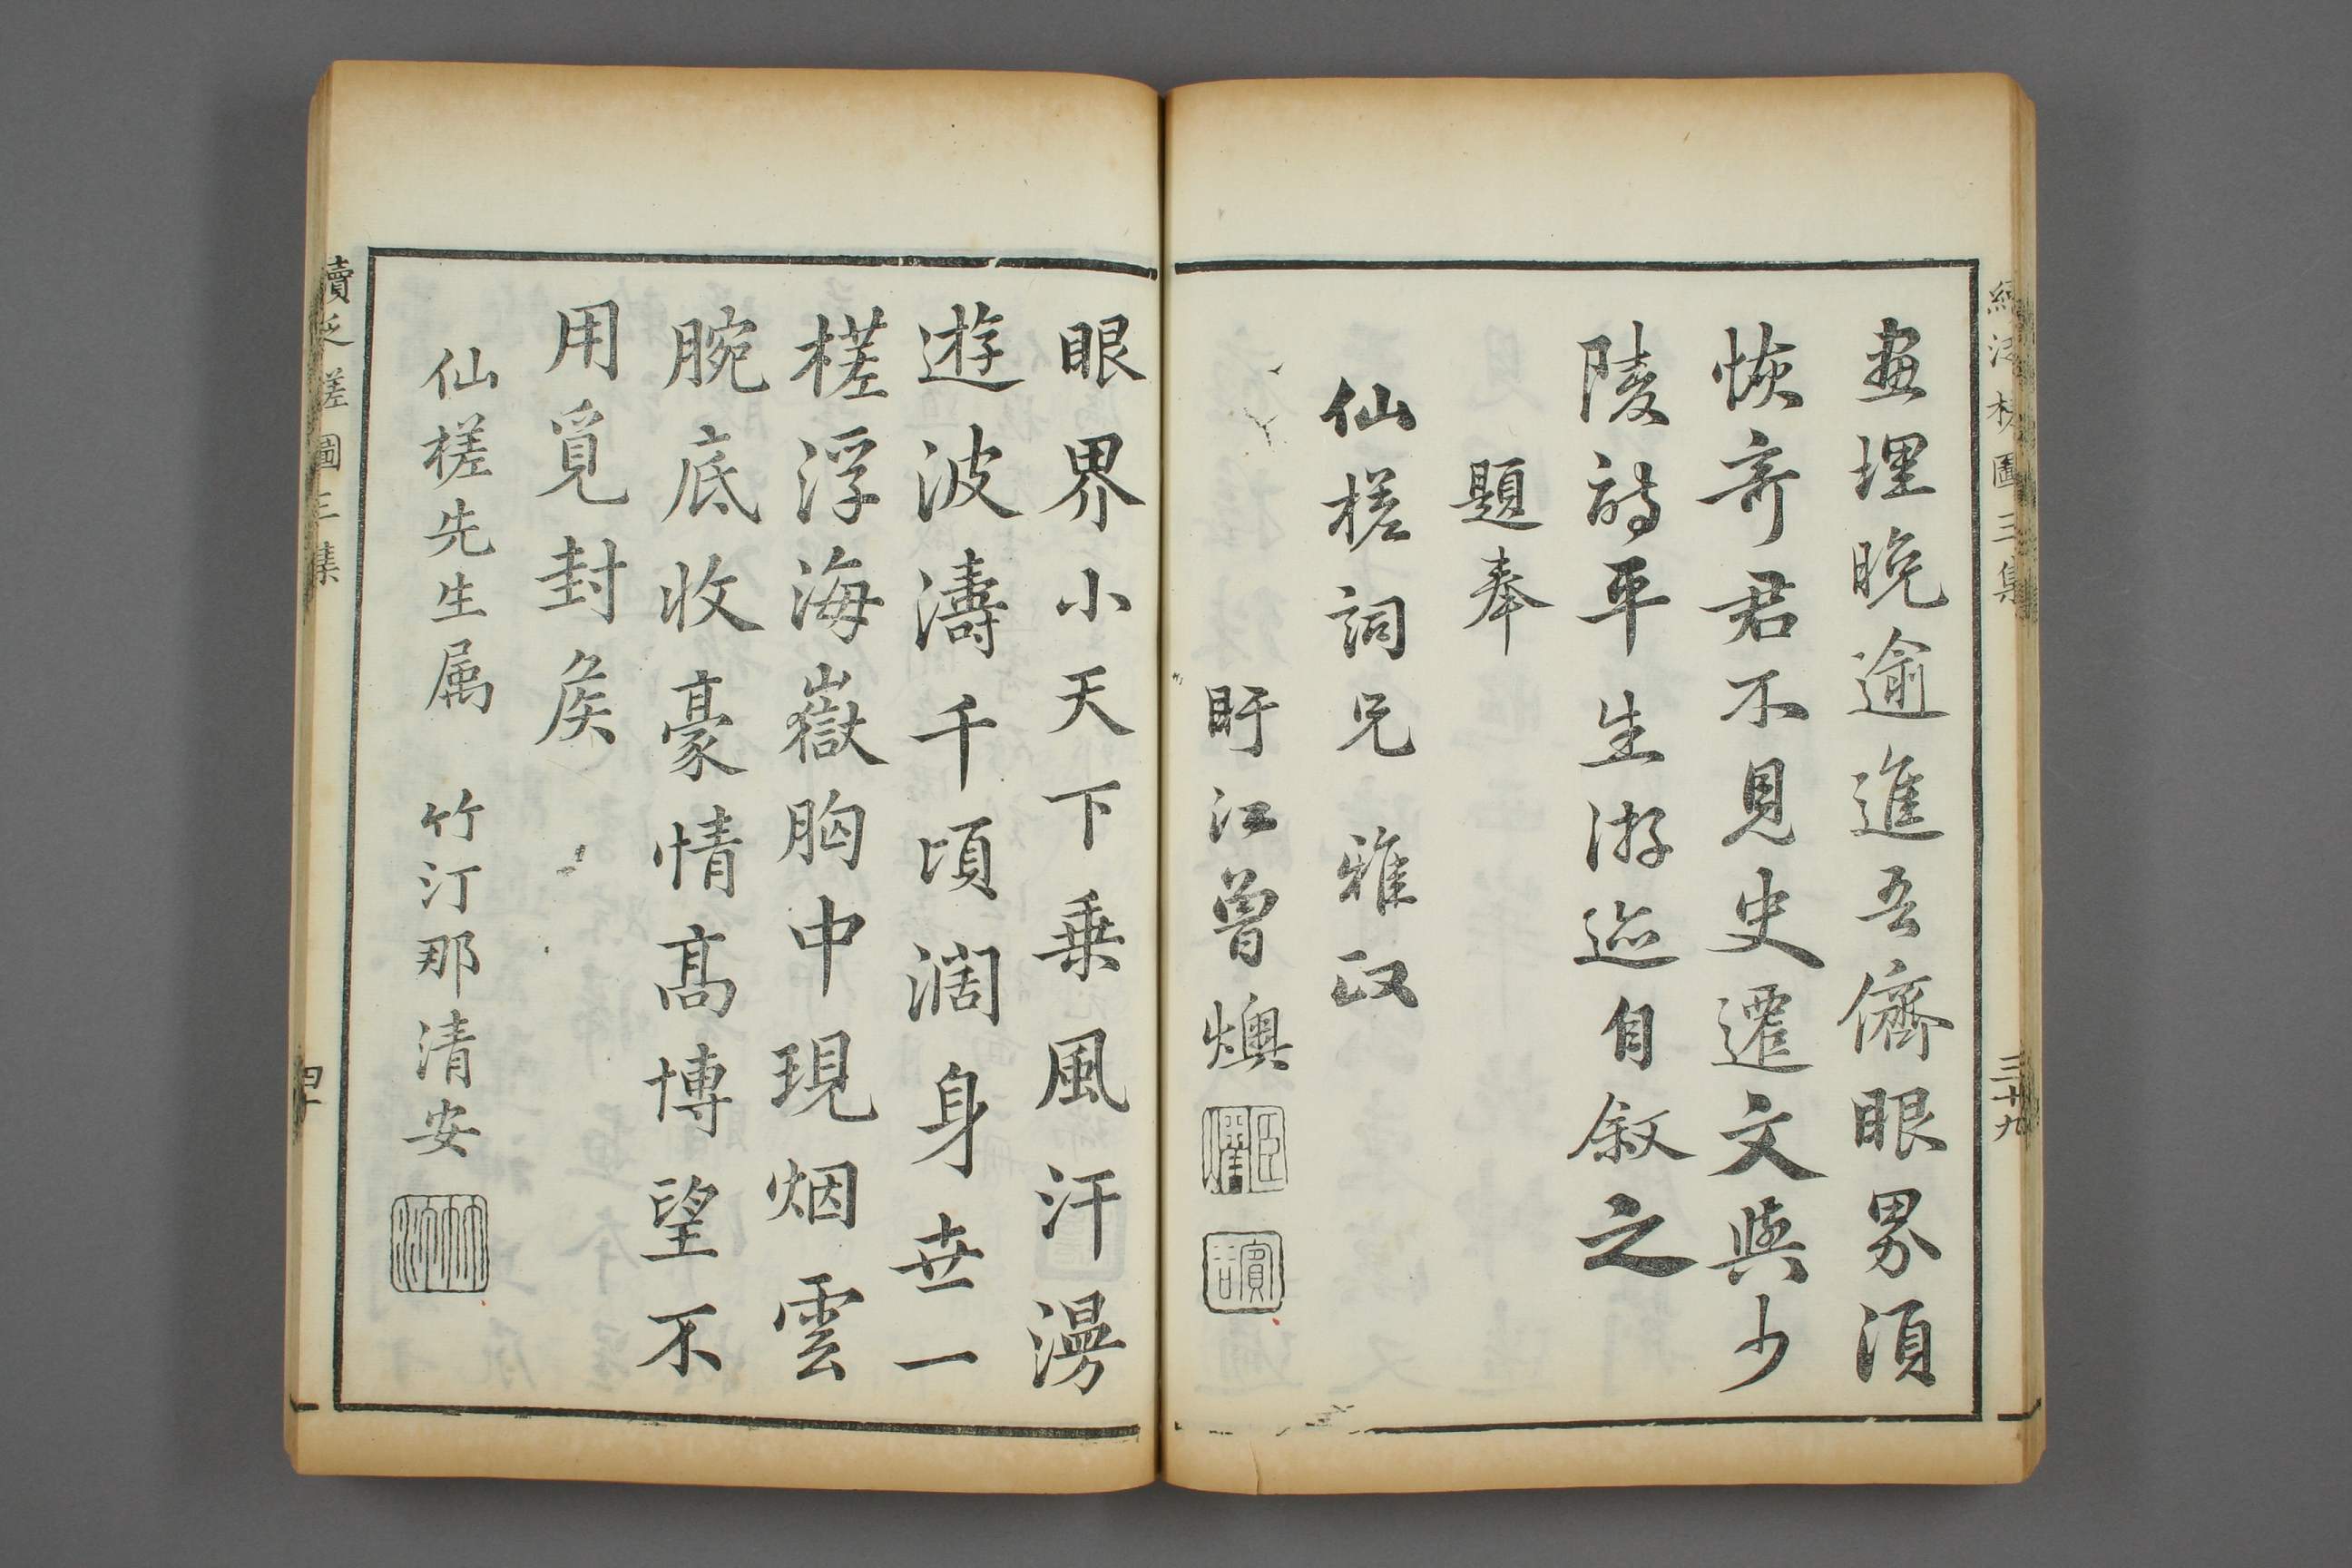 續泛槎圖三集
三十九
畫埋晚逾進吾儕眼界須
恢奇君不見史遷文與少
陵詩平生游迹自叙之
題奉
仙槎詞兄雅政
盱江曾燠
眼界小天下乗風汗漫
遊波濤千頃濶身世一
槎浮海嶽胸中現烟雲
腕底收豪情高博望不
用覓封侯
仙槎先生属 竹汀那清安
續泛槎圖三集
四十